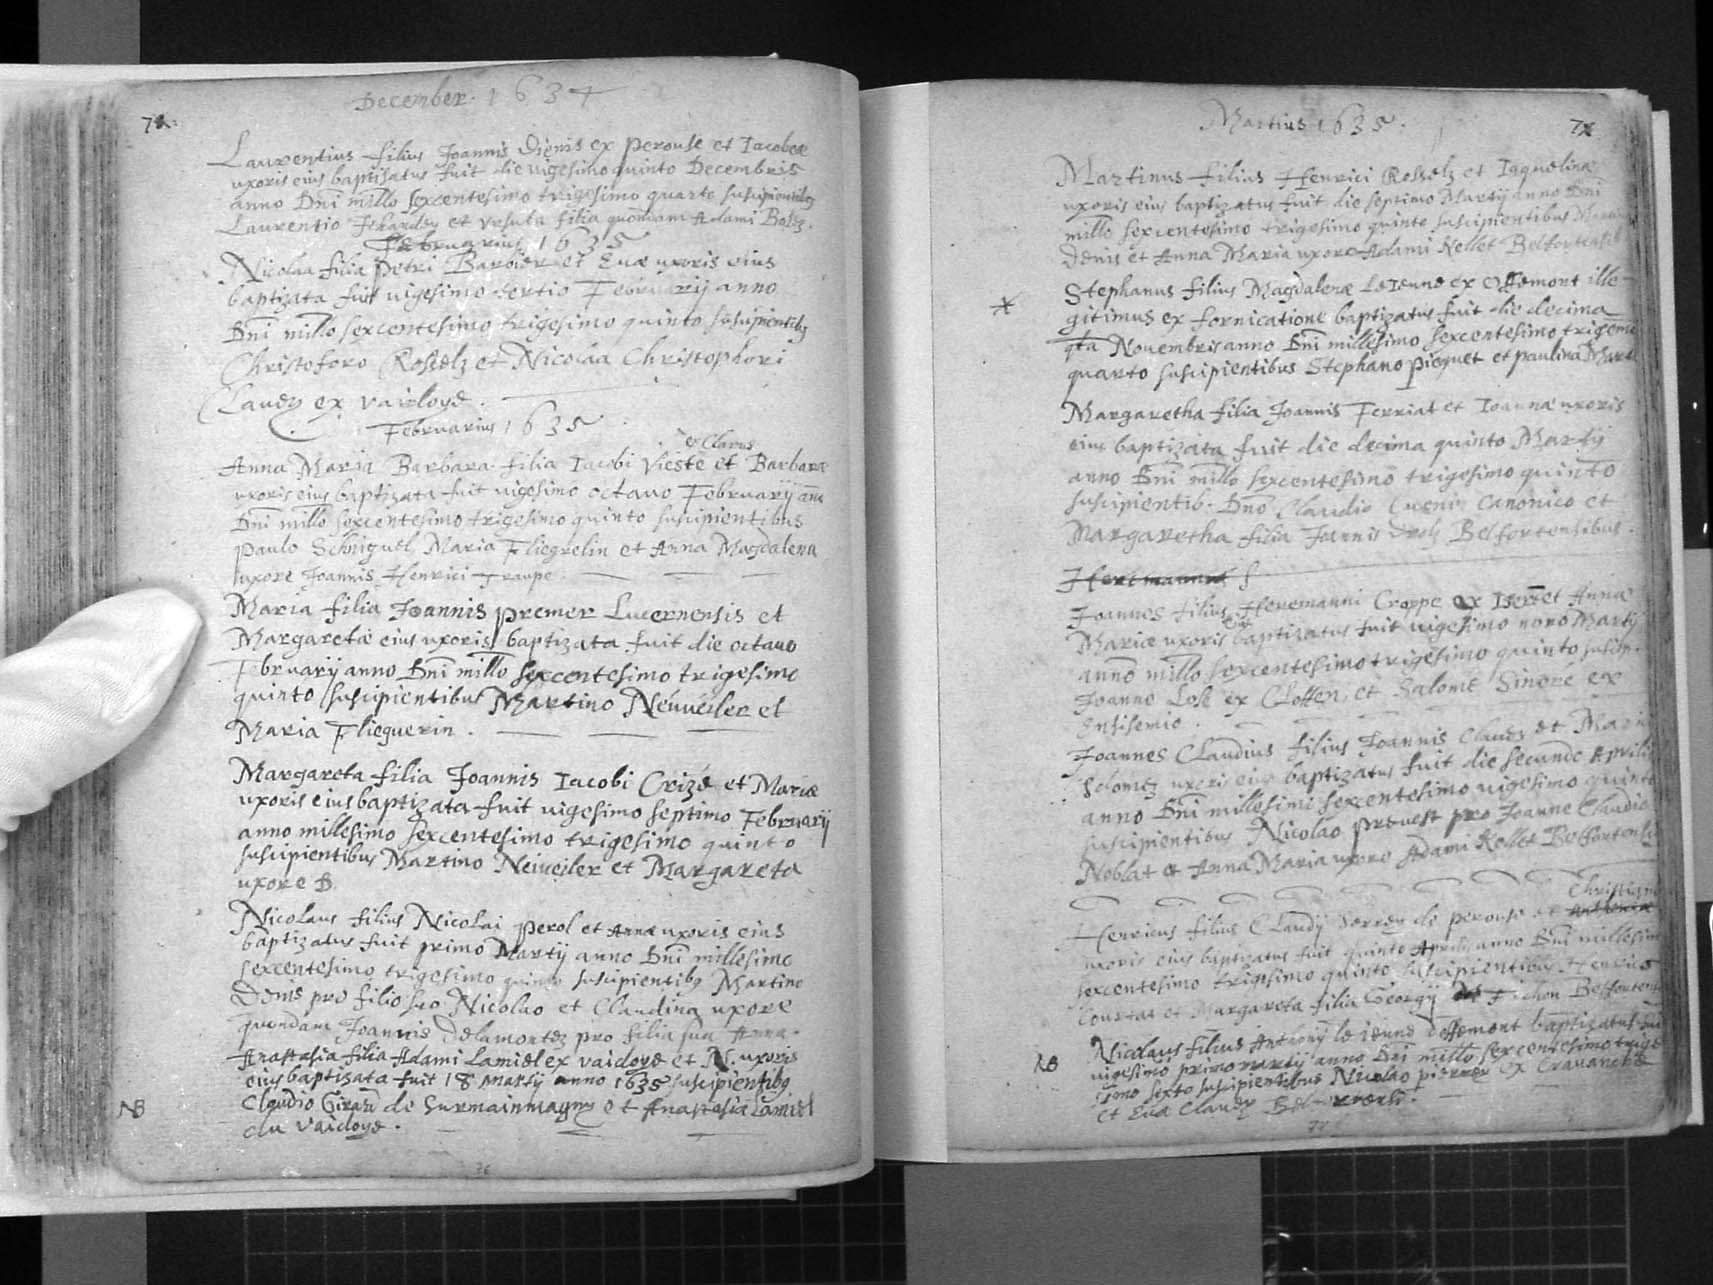 December. 1634
Laurentius filius Joannis Dienis ex perouse et Iacobeæ
uxoris eius baptisatus fuit die vigesimo quinto Decembris
anno Dni millo sexcentesimo trigesimo quarto suscipientibq
Laurentio et Vrsula filia quondam Adami
Februarius 1635
Nicolaa filia Petri Barbier et Euæ uxoris eius
baptizata fuit vigesimo tertio Februarij anno
Dni millo sexcentesimo trigesimo quinto suscipientibq
Christoforo Rosselz et Nicolaa Christophori
Claudz ex vaidoye.
Februarius 1635
ex Clarus
Anna Maria Barbara filia Iacobi Vieste et Barbaræ
uxoris eius baptizata fuit vigesimo octauo Februarij
Dni millo sexcentesimo trigesimo quinto suscipientibus
Paulo Schniguel, Maria Fliegrelin et Anna Magdalena
uxore Joannis Henrici Traupe.
Maria filia Joannis premer Lucernensis et
Margaretæ eius uxoris baptizata fuit die octauo
Februarij anno Dni millo sexcentesimo trigesimo
quinto suscipientibus Martino Neuueiler et
Maria Flieguerin.
Margareta filia Joannis Iacobi Crizé et Mariæ
uxoris eius baptizata fuit uigesimo septimo Februarij
anno millesimo sexcentesimo trigesimo quinto
suscipientibus Martino Neiueiler et Margareta
uxore B.
Nicolaus filius Nicolai perol et Annæ uxoris eius
baptizatus fuit primo Martij anno Dni millesimo
sexcentesimo trigesimo quinto suscipientibq Martino
Denis pro filio suo Nicolao et Claudina uxore
quondam Joannis Delamontez pro filia sua Anna.
Anastasia filia Adami Lamiel ex vaidoye et N. uxoris
eius baptizata fuit 18 martij anno 1635 suscipientibq
NB Claudio Girard de Surmainmagny et Anastasia Lamiel
du vaidoye.
76
Martius 1635.
Martinus filius Henrici Rosselz et Iaquelinæ
uxoris eius baptizatus fuit die septimo Martij anno Dni
millo sexcentesimo trigesimo quinto suscipientibus
Denis et Anna Maria uxore Adami Kellet
Stephanus filius Magdalenæ Le Ieune ex Offemont ille-
gitimus ex fornicatione baptizatus fuit die decima
qta Nouembris anno Dni millesimo sexcentesimo
quarto suscipientibus Stephano piequet et paulina
Margaretha filia Joannis Ferriat et Ioannæ uxoris
eius baptizata fuit die decima quinto Martij
anno Dni millo sexcentesimo trigesimo quinto
suscipientib. Dno Claudio Cueni Canonico et
Margaretha filia Joannis Belfortensibus.
Joannes filius Heremanni Croppe ex et Annæ
Mariæ uxoris eius baptizatus fuit uigesimo nono Martij
anno millo sexcentesimo trigesimo quinto suscip.
Joanne Lose ex et Salome Sinoré ex
Ensisemio.
Joannes Claudius filius Joannis Claudz et
uxori eius baptizatus fuit die secundo Aprilis
anno Dni millesimo sexcentesimo uigesimo quinto
suscipientibus Nicolao preuost pro Joanne Claudio
Noblat et Anna Maria uxore Adami Kellet
Henricus filius Claudij de perouse et Christiana
uxoris eius baptizatus fuit quinto Aprilis anno Dni
sexcentesimo trigesimo quinto suscipientibus Henrico
Courtat et Margareta filia Georgij
Nicolaus filius Anthonij le ieune d'offemont baptizatus
NB vigesimo primo martij anno Dni millo sexcentesimo
simo sexto suscipientibus Nicolao ex Crauanche
et Eua Claudz